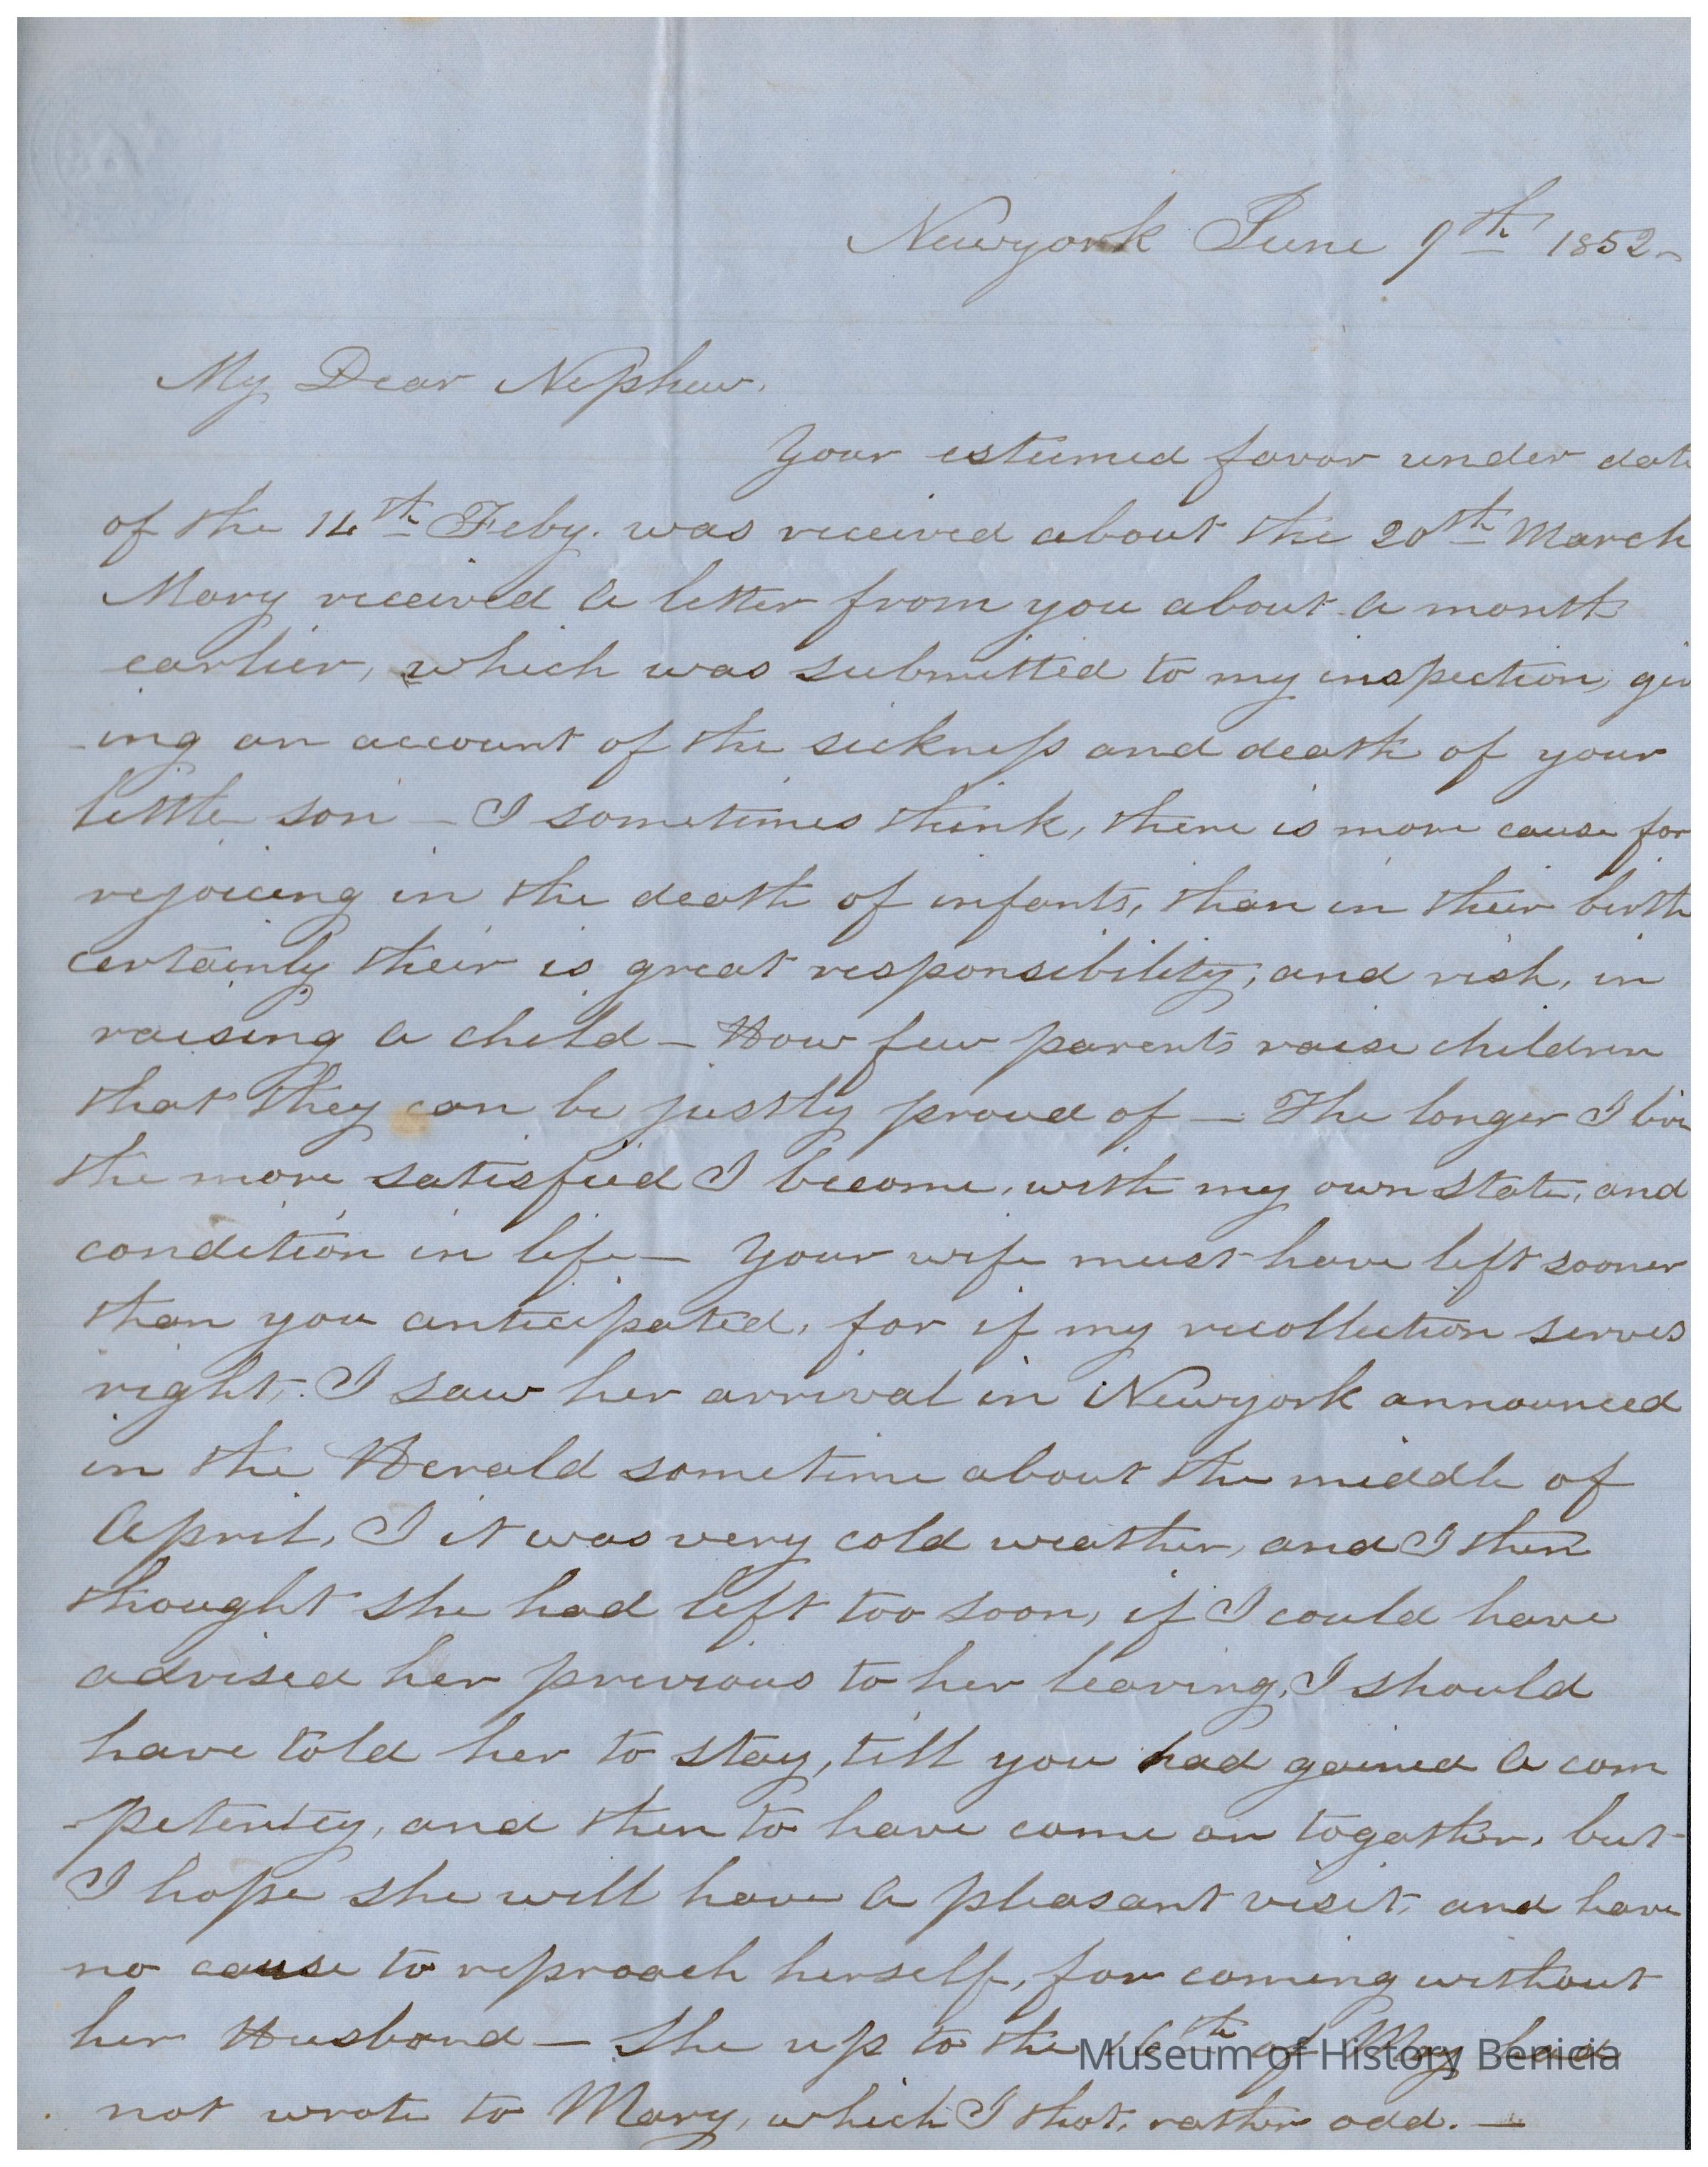 Newyork June 9th 1852
My Dear Nephew.
Your esteemed favor under date
of the 14th Feby. was received about the 20th March
Mary received a letter from you about a month
earlier, which was submitted to my inspection, giv
-ing an account of the sickness and death of your
little son – I sometimes think, there is more cause for
rejoicing in the death of infants, than in their birth
certainly their is great responsibility, and risk, in
raising a child – How few parents raise children
that they can be justly proud of – The longer I live
the more satisfied I become, with my own state, and
condition in life – Your wife must have left sooner
than you anticipated, for if my recollection serves
right, I saw her arrival in Newyork announced
in the Herald sometime about the middle of
April, I it was very cold weather, and I then
thought she had left too soon, if I could have
advised her previous to her leaving, I should
have told her to stay, till you had gained a com
-petentcy, and then to have come on togather, but
I hope she will have a pleasant visit, and have
no cause to reproach herself, for coming without
her Husband – She up to the 16th of May had
not wrote to Mary, which I thot, rather odd. –
Museum of History Benicia